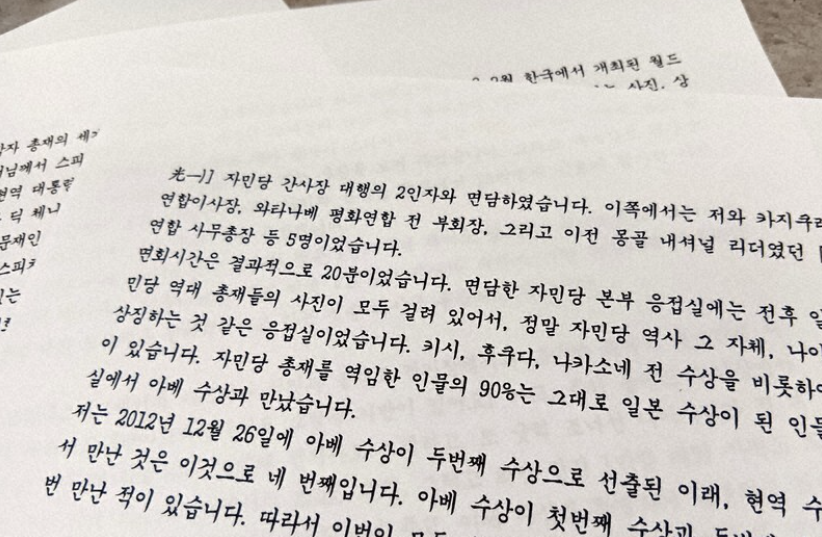 월 한국에서 개최된 월드
사진, 상
총재의
님께서 스피
현역 대통령
딕 체니
문재인
스피
光一)] 자민당 간사장 대행의 2인자와 면담하였습니다. 이쪽에서는 저와 카지쿠리
연합이사장, 와타나베 평화연합 전 부회장, 그리고 이전 몽골 내셔널 리더였던
연합 사무총장 등 5명이었습니다.
면회시간은 결과적으로 20분이었습니다. 면담한 자민당 본부 응접실에는 전후
민당 역대 총재들의 사진이 모두 걸려 있어서, 정말 자민당 역사 그 자체, 나아
상징하는 것 같은 응접실이었습니다. 키시, 후쿠다, 나카소네 전 수상을 비롯하여
이 있습니다. 자민당 총재를 역임한 인물의 90%는 그대로 일본 수상이 된 인물
실에서 아베 수상과 만났습니다.
저는 2012년 12월 26일에 아베 수상이 두번째 수상으로 선출된 이래, 현역 수
서 만난 것은 이것으로 네 번째입니다. 아베 수상이 첫번째 수상과
번 만난 적이 있습니다. 따라서 이번이 모두